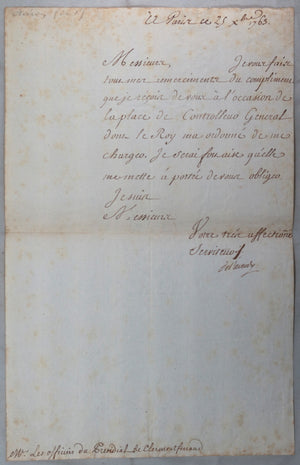 à Paris ce 25 Xbre 1763
Messieurs, Je vous fais
tous mes remerciements du compliment
que je reçois de vous à l'occasion de
la place de Controlleur Général
dont le Roy m'a ordonné de me
charger. Je serai fort aise qu'elle
me mette à porté de vous obliger.
Je suis
Messieurs
Votre très affectionné
Serviteur
Mrs. Les officiers du Présidial de Clermont ferrand